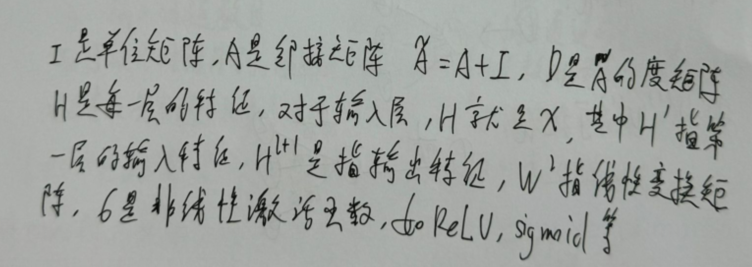 I是单位矩阵,A是邻接矩阵 Ã=A+I, D是Ã的度矩阵
H是每一层的特征,对于输入层,H就是X,其中H¹指第
一层的输入特征,Hˡ⁺¹是指输出特征,Wˡ指线性变换矩
阵,σ是非线性激活函数,如ReLU,sigmoid等